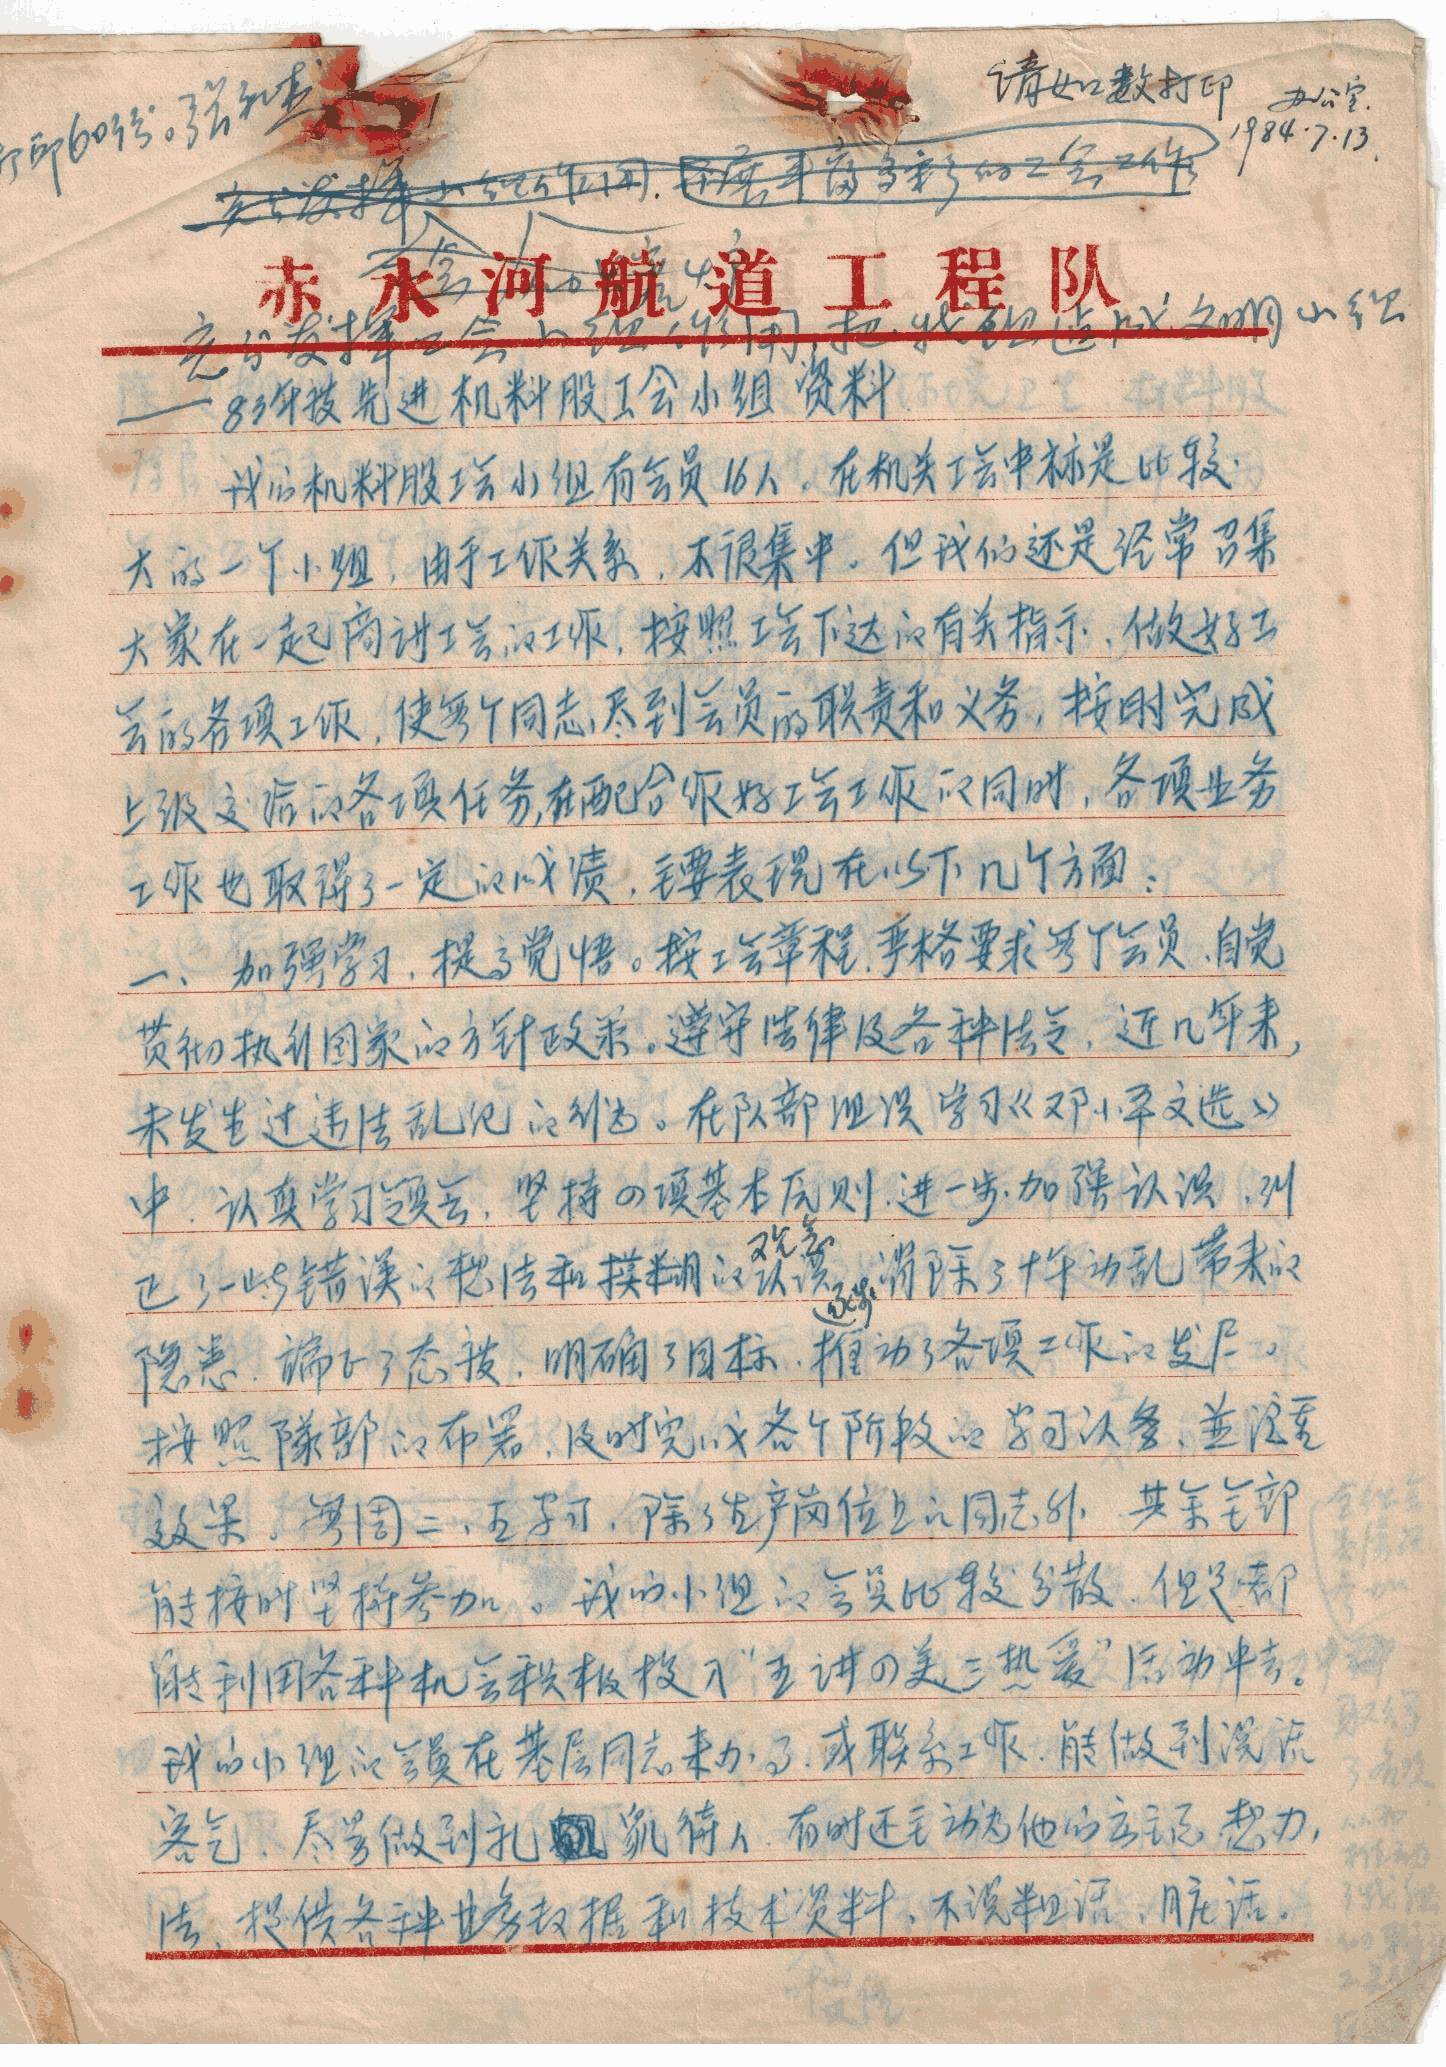 打印60份。
请如数打印 办公室.
1984.7.13.
赤水河航道工程队
充分发挥工会小组作用,把我组造成文明小组
——83年度先进机料股工会小组资料
我们机料股工会小组有会员16人,在机关工会中标是比较
大的一个小组,由于工作关系,不很集中。但我们还是经常召集
大家在一起商讨工会的工作,按照工会下达的有关指示,做好工
会的各项工作,使每个同志尽到会员的职责和义务,按时完成
上级交给的各项任务,在配合作好工会工作的同时,各项业务
工作也取得了一定的成绩,主要表现在以下几个方面:
一、加强学习,提高觉悟。按工会章程,严格要求每个会员,自觉
贯彻执行国家的方针政策。遵守法律及各种法令,近几年来,
未发生过违法乱纪的行为。在队部组织学习《邓小平文选》
中,认真学习领会,坚持四项基本原则,进一步加强认识,纠
正了一些错误的想法和摸糊的观念,消除了十年动乱带来的
隐患,端正了态度,明确了目标,推动了各项工作的发展。
按照隊部的布署,及时完成各个阶段的学习任务,並注重
效果,每周二、五学习,除了生产岗位上的同志外,其余全部
能按时坚持参加。我们小组的会员比较分散,但是都
能利用各种机会积极投入“五讲四美三热爱”活动中去。
我们小组的会员在基层同志来办事,或联系工作,能做到说话
客气,尽量做到礼貌待人,有时还主动为他们出主意想办
法,提供各种业务数据和技术资料,不说粗话,脏话。